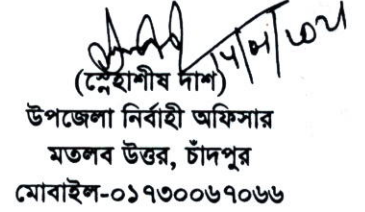 (স্নেহাশীষ দাশ)
উপজেলা নির্বাহী অফিসার
মতলব উত্তর, চাঁদপুর
মোবাইল-০১৭৩০০৬৭০৬৬